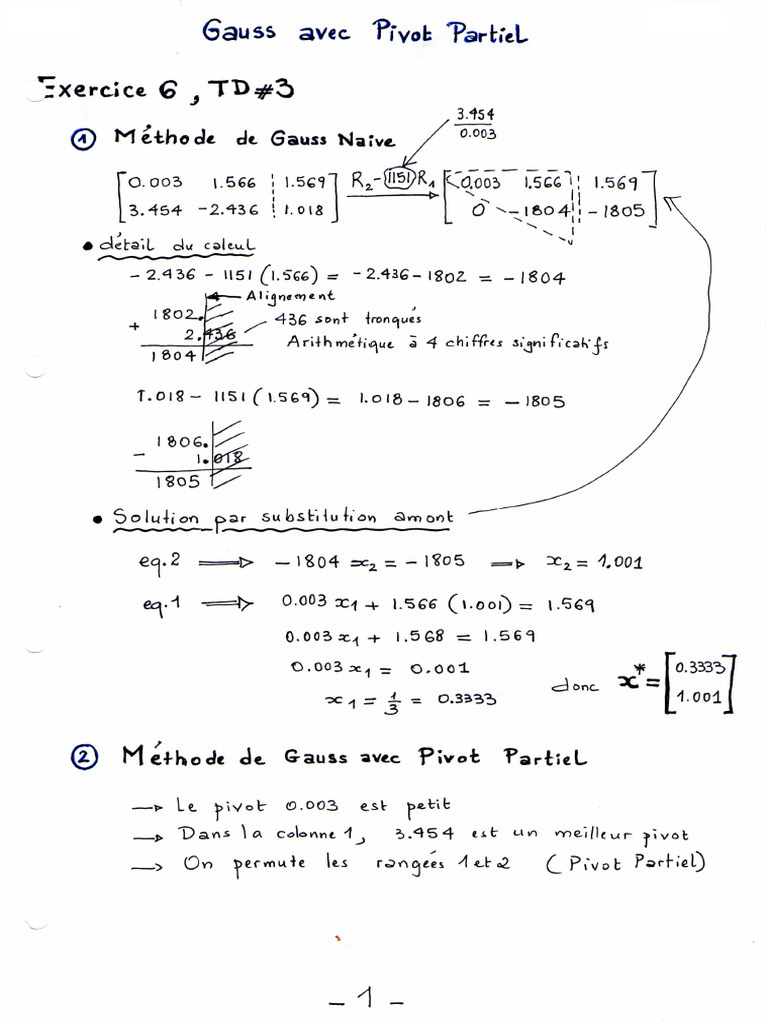 Gauss avec Pivot Partiel
Exercice 6, TD#3
① Méthode de Gauss Naive
3.454
0.003
0.003 1.566 1.569 R2-1151R1 0.003 1.566 1.569
3.454 -2.436 1.018 0 -1804 -1805
• détail du calcul
-2.436 - 1151 (1.566) = -2.436-1802 = -1804
Alignement
1802.
+ 2.436 436 sont tronqués
1804 Arithmétique à 4 chiffres significatifs
1.018 - 1151 (1.569) = 1.018-1806 = -1805
1806.
- 1.018
1805
• Solution par substitution amont
eq.2 ⟹ -1804 x2 = -1805 → x2 = 1.001
eq.1 ⟹ 0.003 x1 + 1.566 (1.001) = 1.569
0.003 x1 + 1.568 = 1.569
0.003 x1 = 0.001
x1 = 1/3 = 0.3333 donc x* = [0.3333
1.001]
② Méthode de Gauss avec Pivot Partiel
→ Le pivot 0.003 est petit
→ Dans la colonne 1, 3.454 est un meilleur pivot
→ On permute les rangées 1 et 2 (Pivot Partiel)
- 1 -